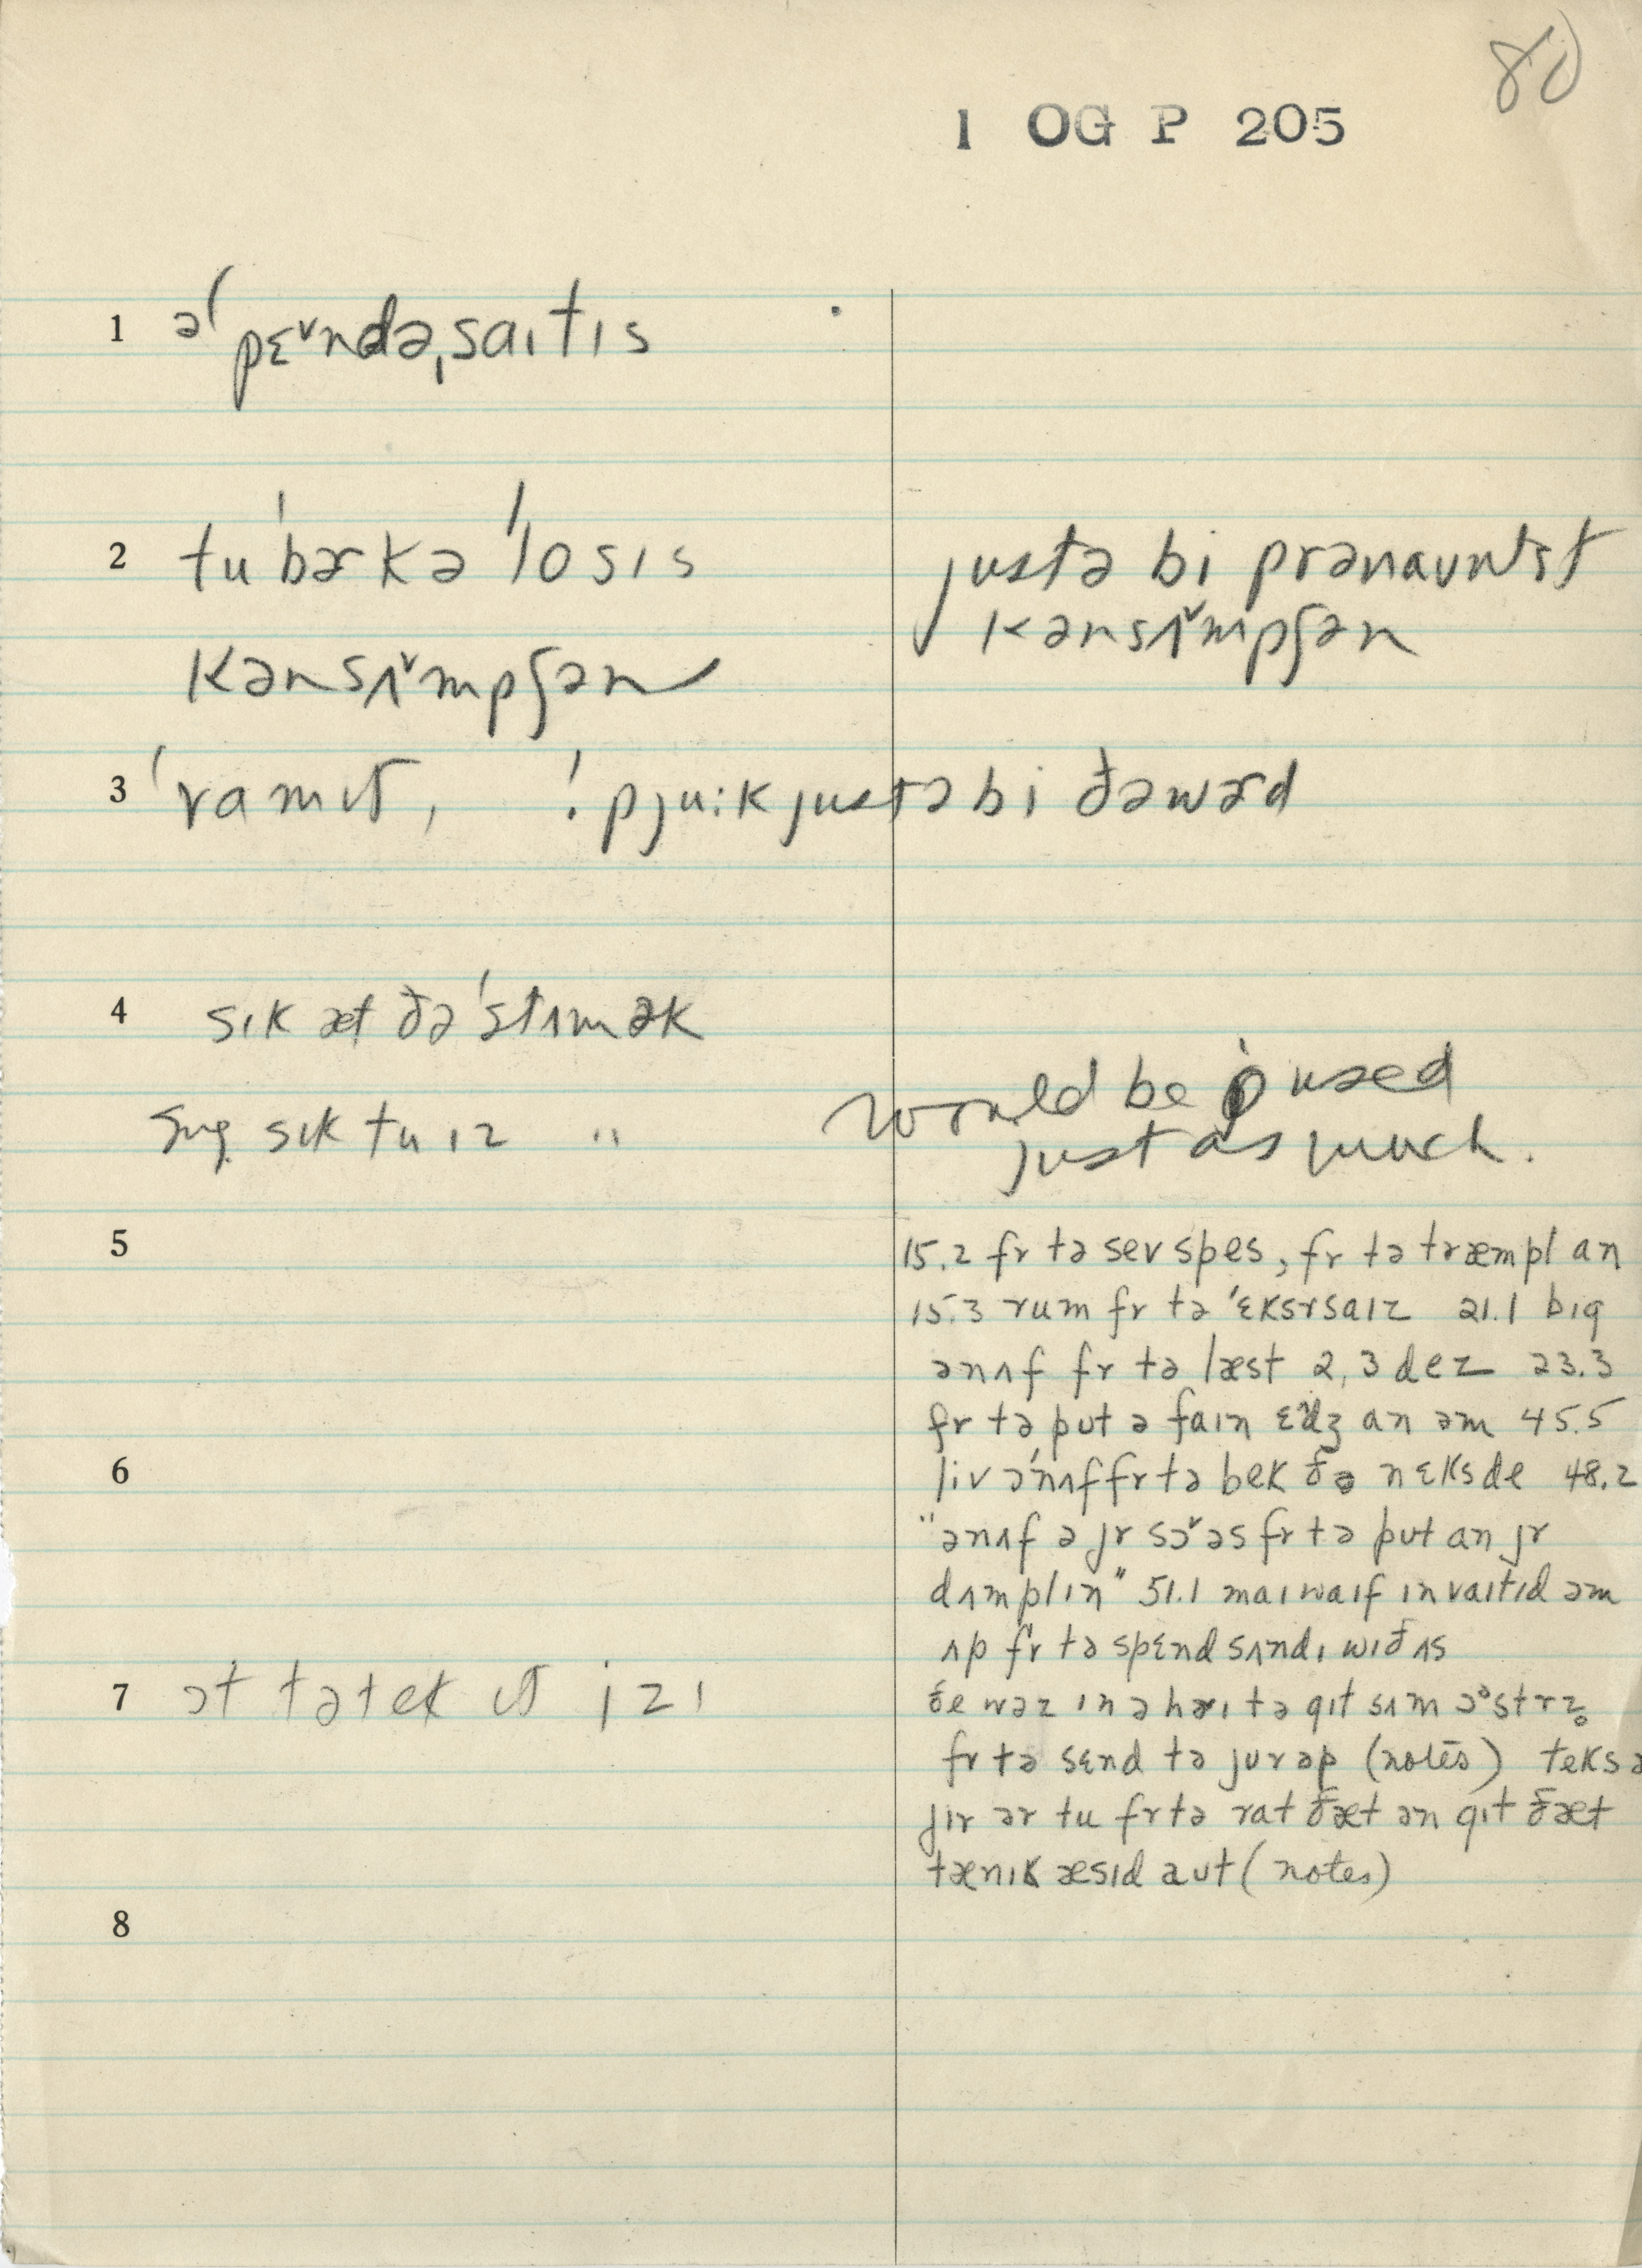 80
1 OG P 205
1 əˈpɛ˅ndəˌsaɪtɪs
2 tuˈbərkəˈlosɪs justə bi prənaʊntst
kənsʌ˅mpʃən
kənsʌ˅mpʃən
3 ˈvamɪt, ! pju:k justə bi ðə wərd
4 sɪk æt ðə ˈstʌmək
sɪk tu ɪz " would be used
just as much.
5 15.2 fr tə sev spes, fr tə træmpl an
15.3 rum fr tə ˈɛksrsaɪz 21.1 bɪg
ənʌf fr tə læst 2, 3 dez 23.3
fr tə put ə faɪn ɛdʒ an əm 45.5
6 liv əˈnʌf fr tə bek ðə nɛks de 48.2
"ənʌf ə jr sɔ˅əs fr tə put an jr
dʌmplɪn" 51.1 maɪ waɪf ɪnvaɪtɪd əm
ʌp fr tə spɛnd sʌndɪ wɪð ʌs
7 ɔt tə tek ɪt izɪ ðe wəz ɪn ə hərɪ tə gɪt sʌm ɔəstrz
fr tə sɛnd tə jurəp (notes) teks ə
jir ər tu fr tə rat ðæt ən gɪt ðæt
tænɪk æsɪd aut (notes)
8